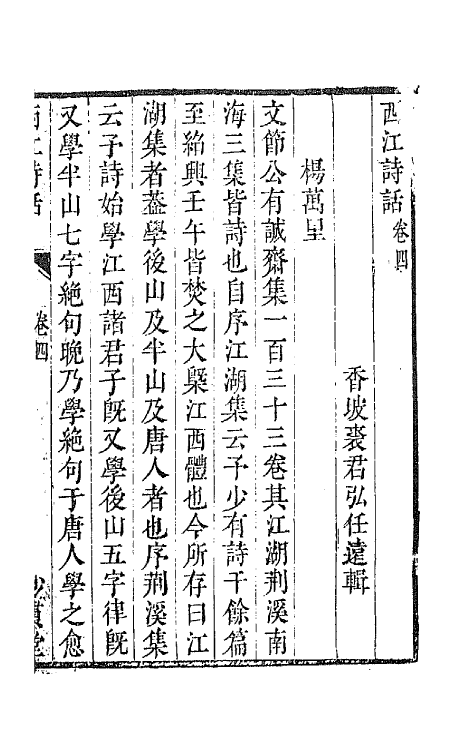 西江詩話卷四
香坡裘君弘任遠輯
楊萬里
文節公有誠齋集一百三十三卷其江湖荆溪南
海三集皆詩也自序江湖集云予少有詩千餘篇
至紹興壬午皆焚之大槩江西體也今所存曰江
湖集者葢學後山及半山及唐人者也序荆溪集
云予詩始學江西諸君子既又學後山五字律既
又學半山七字絶句晚乃學絶句于唐人學之愈
西江詩話 卷四 妙貫堂